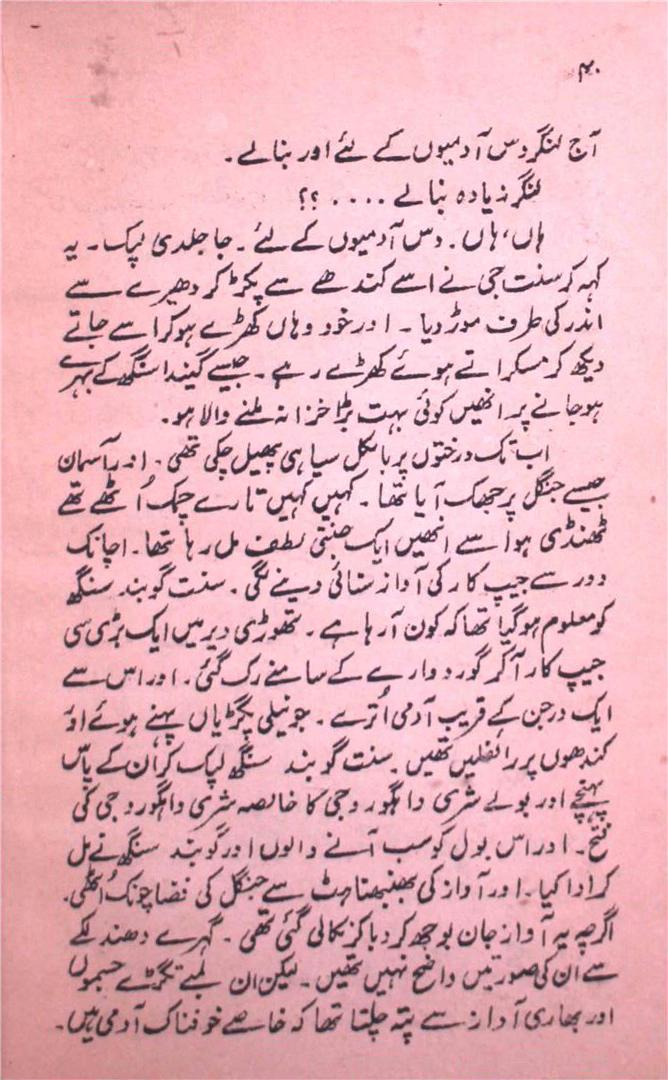 ۴۰
آج لنگر دس آدمیوں کے لئے اور بنالے۔
لنگر زیادہ بنالے ....؟؟
ہاں، ہاں۔ دس آدمیوں کے لئے۔ جا جلدی لپک۔ یہ
کہہ کر سنت جی نے اسے کندھے سے پکڑ کر دھیرے سے
اندر کی طرف موڑ دیا۔ اور خود وہاں کھڑے ہو کر اسے جاتے
دیکھ کر مسکراتے ہوئے کھڑے رہے۔ جیسے گیندا سنگھ کے بہرے
ہو جانے پر انھیں کوئی بہت بڑا خزانہ ملنے والا ہو۔
اب تک درختوں پر بالکل سیاہی پھیل چکی تھی۔ اور آسمان
جیسے جنگل پر جھک آیا تھا۔ کہیں کہیں تارے چمک اُٹھے تھے
ٹھنڈی ہوا سے انھیں ایک جنبتی لطف مل رہا تھا۔ اچانک
دور سے جیپ کار کی آواز سنائی دینے لگی۔ سنت گوبند سنگھ
کو معلوم ہو گیا تھا کہ کون آرہا ہے۔ تھوڑی دیر میں ایک بڑی سی
جیپ کار آکر گوردوارے کے سامنے رک گئی۔ اور اس سے
ایک درجن کے قریب آدمی اُترے۔ جو نیلی پگڑیاں پہنے ہوئے اور
کندھوں پر رائفلیں تھیں۔ سنت گوبند سنگھ لپک کر اُن کے پاس
پہنچے اور بولے شری واہگورو جی کا خالصہ شری واہگورو جی کی
فتح۔ اور اس بول کو سب آنے والوں اور گوبند سنگھ نے مل
کر ادا کیا۔ اور آواز کی بھنبھناہٹ سے جنگل کی فضا چونک اُٹھی۔
اگرچہ یہ آواز جان بوجھ کر دبا کر نکالی گئی تھی۔ گہرے دھندلکے
سے ان کی صورتیں واضح نہیں تھیں۔ لیکن ان لمبے تگڑے جسموں
اور بھاری آواز سے پتہ چلتا تھا کہ خاصے خوفناک آدمی ہیں۔